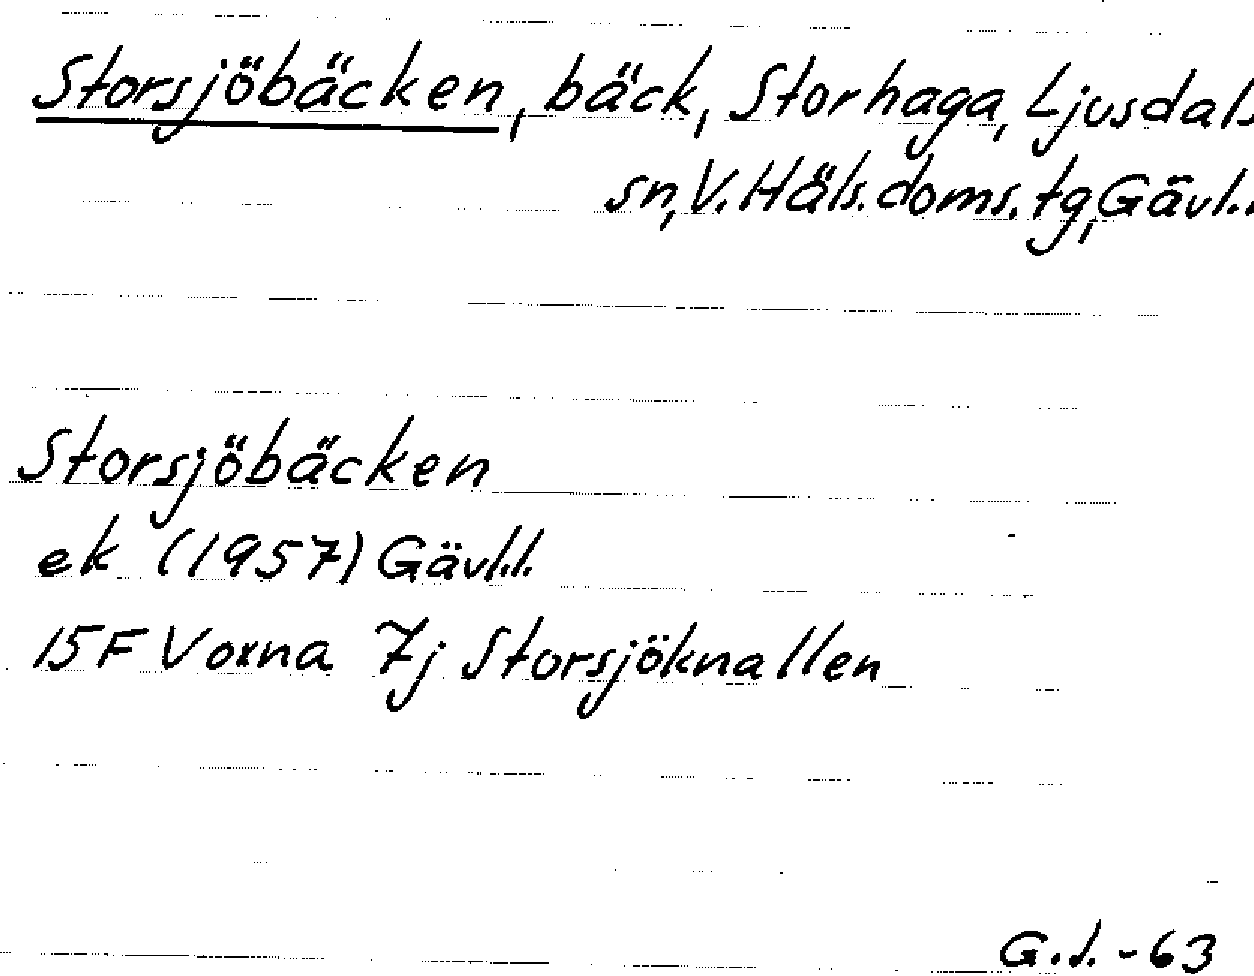 Storsjöbäcken, bäck, Storhaga, Ljusdals
sn, V. Häls. doms. tg, Gävl. l.
Storsjöbäcken
ek (1957) Gävl.l.
15F Voxna 7j Storsjöknallen
G.J. -63